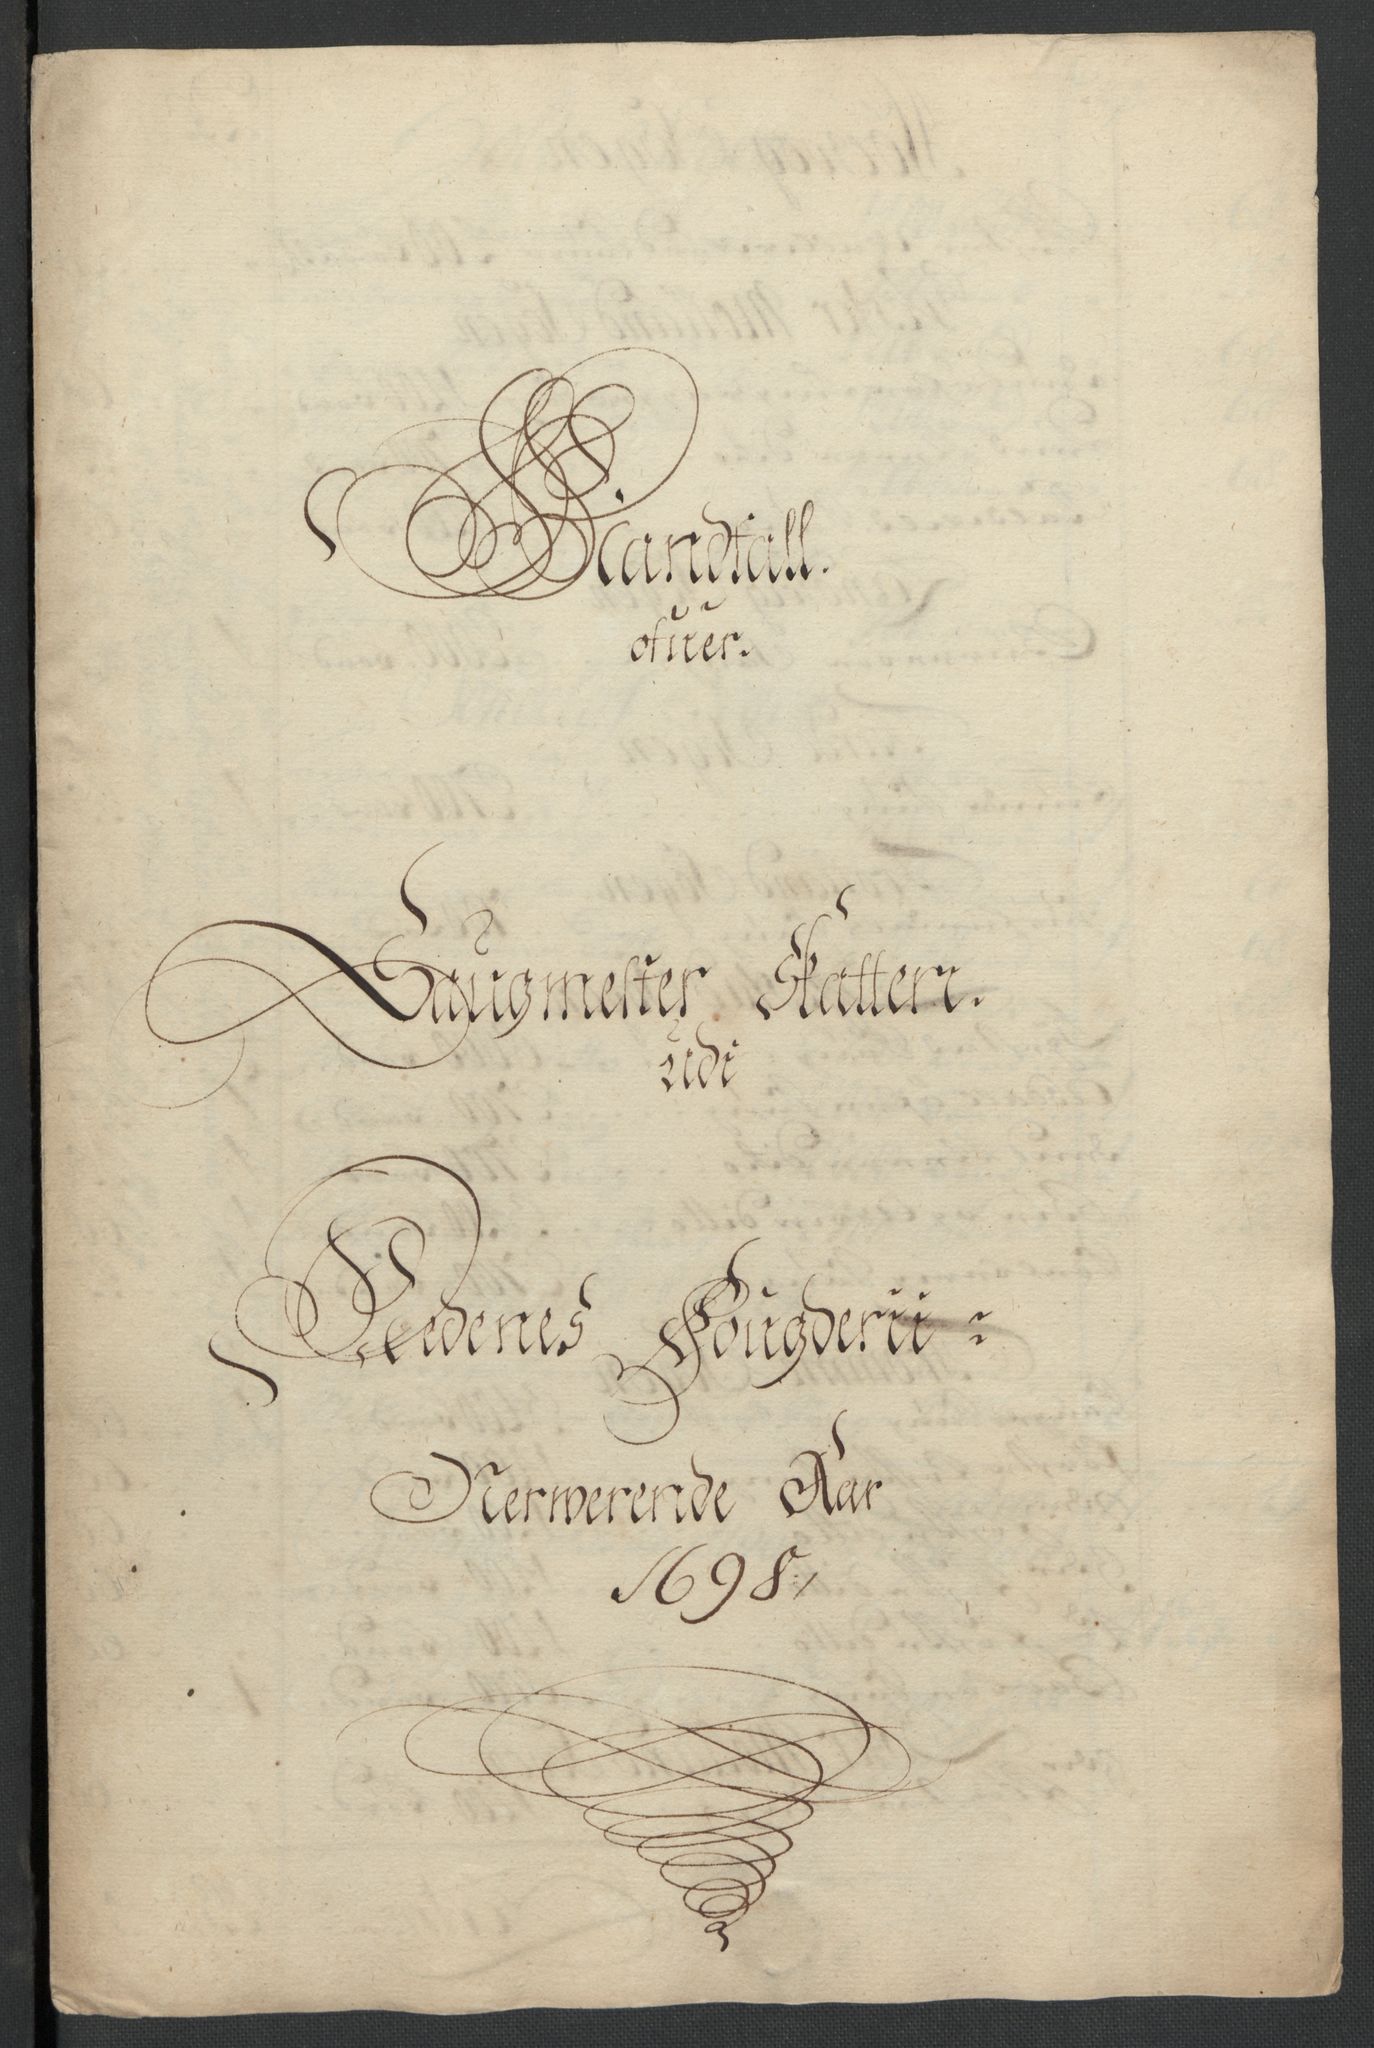 Mandtall.
ofuer.
Saugmester Skatten.
udi
Nedenes Fougderij:
Nerwerende Aar
1698